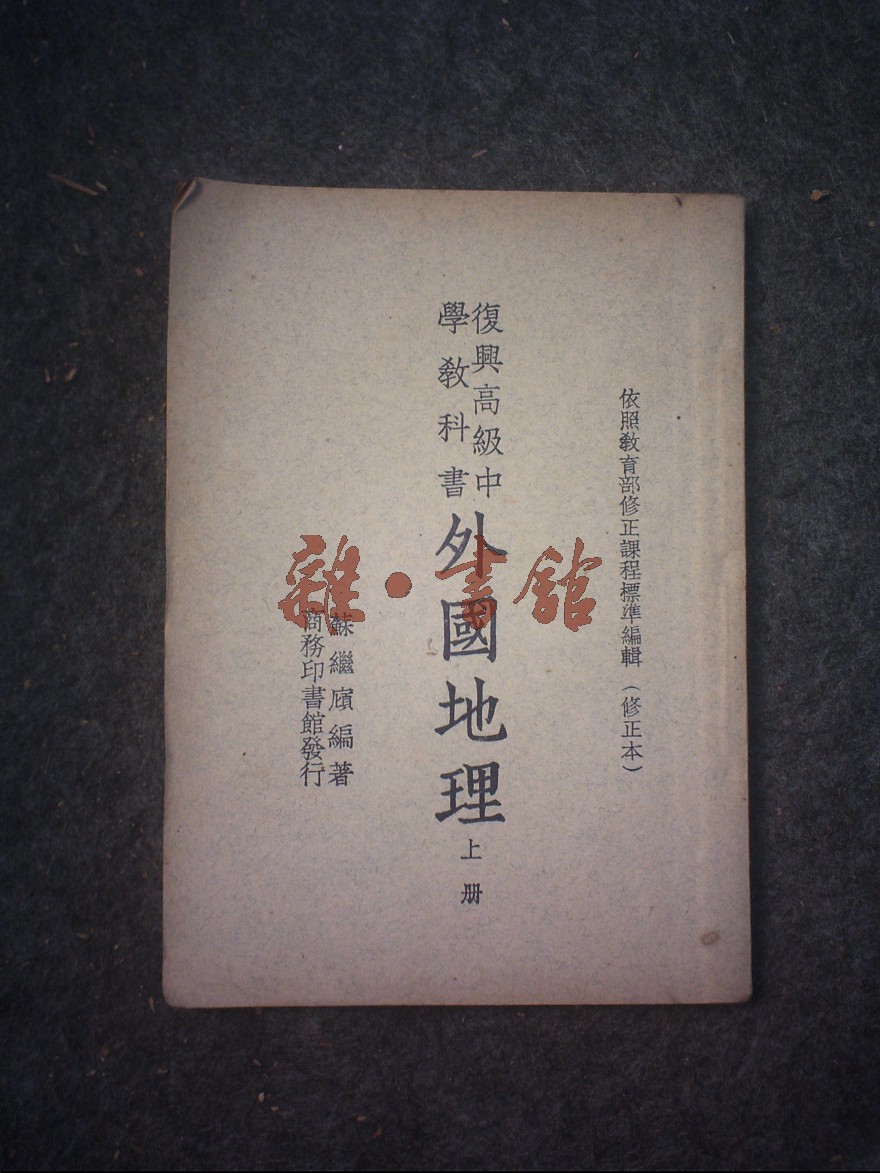 依照教育部修正課程標準編輯（修正本）
復興高級中
學教科書
外國地理上册
蘇繼廎編著
商務印書館發行
雜·書館